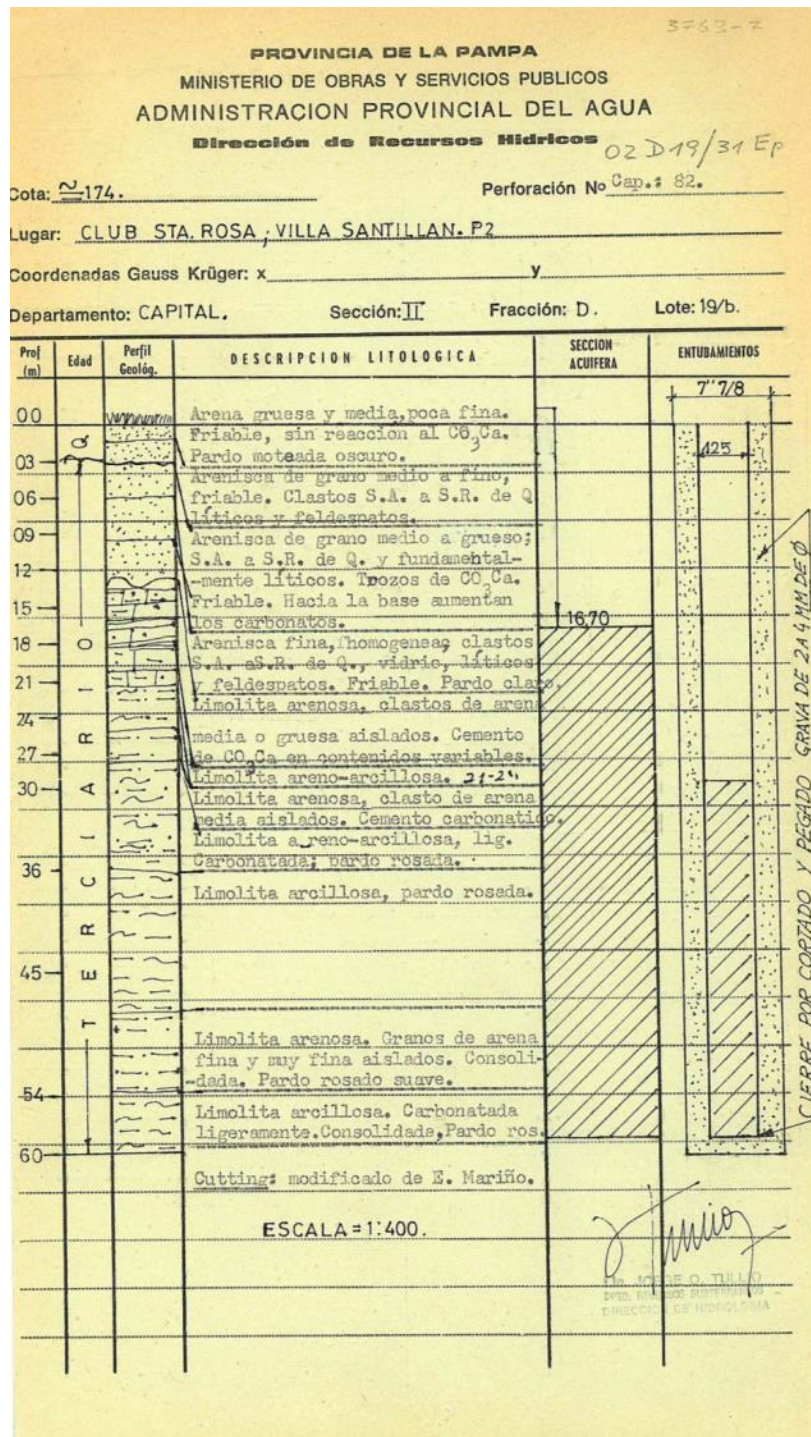 3763-7
PROVINCIA DE LA PAMPA
MINISTERIO DE OBRAS Y SERVICIOS PUBLICOS
ADMINISTRACION PROVINCIAL DEL AGUA
Dirección de Recursos Hidricos
02 D19/31 Ep
Cota: ≃174.
Perforación No Cap.: 82.
Lugar: CLUB STA. ROSA; VILLA SANTILLAN. P2
Coordenadas Gauss Krüger: x y
Departamento: CAPITAL. Sección: II Fracción: D. Lote: 19/b.
Prof (m)
Edad
Perfil Geológ.
DESCRIPCION LITOLOGICA
SECCION ACUIFERA
ENTUBAMIENTOS
7"7/8
425
00
03
06
09
12
15
18
21
24
27
30
36
45
54
60
Q
TERCIARIO
Arena gruesa y media, poca fina.
Friable, sin reacción al CO3Ca.
Pardo moteada oscuro.
Arenisca de grano medio a fino,
friable. Clastos S.A. a S.R. de Q
líticos y feldespatos.
Arenisca de grano medio a grueso;
S.A. a S.R. de Q. y fundamental-
-mente líticos. Trozos de CO3Ca.
Friable. Hacia la base aumentan
los carbonatos.
Arenisca fina, homogenea, clastos
S.A. aS.R. de Q., vidrio, líticos
y feldespatos. Friable. Pardo claro.
Limolita arenosa, clastos de arena
media o gruesa aislados. Cemento
de CO3Ca en contenidos variables.
Limolita areno-arcillosa. 21-24
Limolita arenosa, clasto de arena
media aislados. Cemento carbonatico.
Limolita areno-arcillosa, lig.
Carbonatada; pardo rosada.
Limolita arcillosa, pardo rosada.
Limolita arenosa. Granos de arena
fina y muy fina aislados. Consoli-
-dada. Pardo rosado suave.
Limolita arcillosa. Carbonatada
ligeramente.Consolidada,Pardo ros.
Cutting: modificado de E. Mariño.
ESCALA=1:400.
16,70
CIERRE POR CORTADO Y PEGADO GRAVA DE 2 A 4 MM DE Ø
Lic. JORGE O. TULLIO
DPTO. RECURSOS SUBTERRANEOS
DIRECCION DE HIDROLOGIA